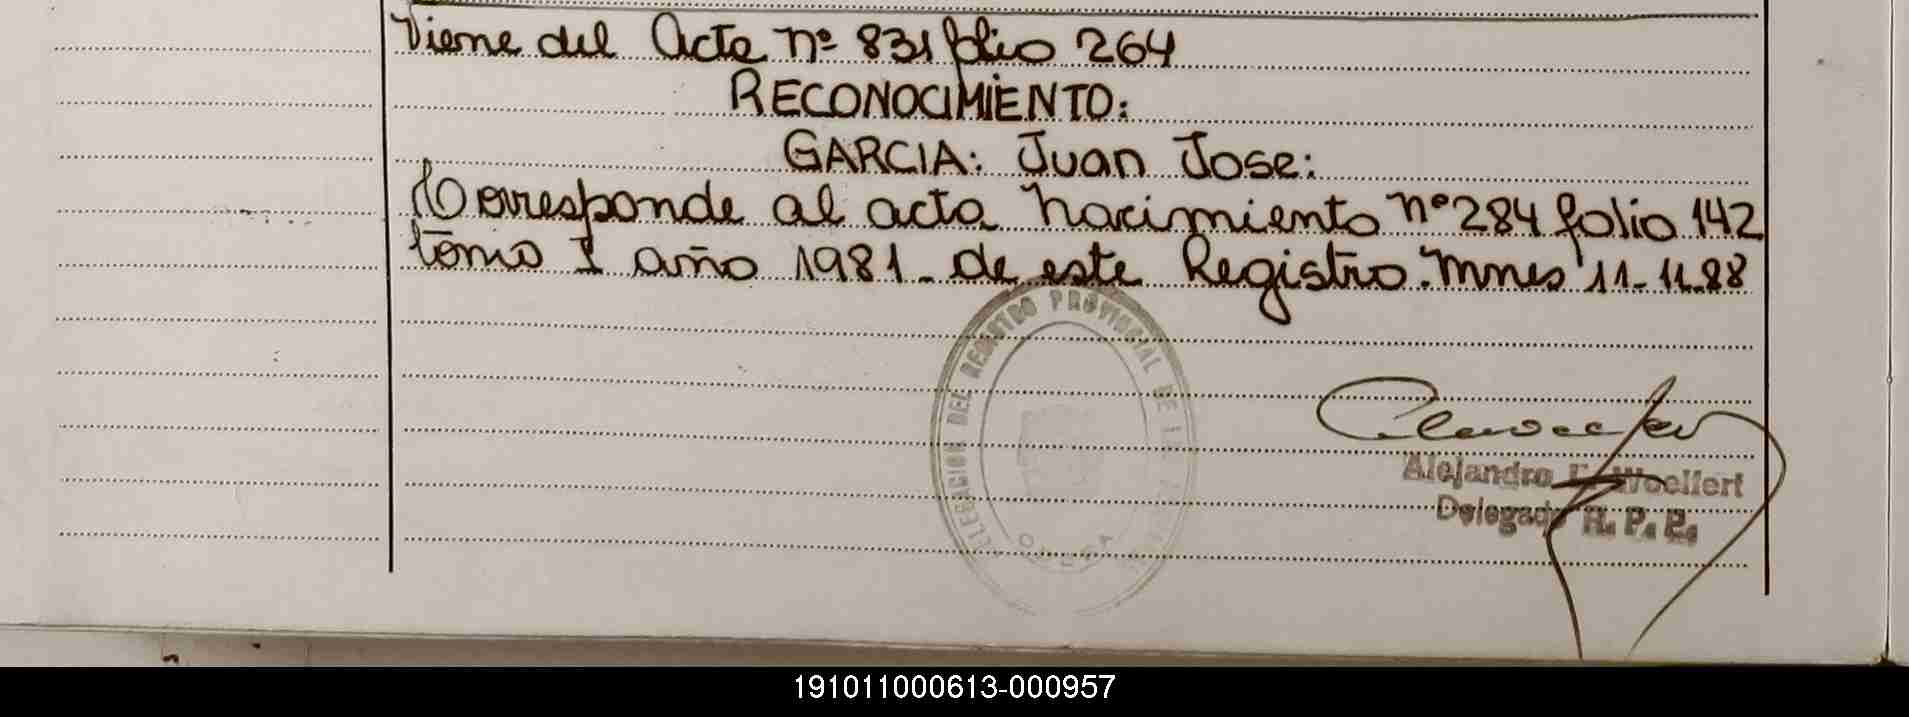 Viene del Acta nº 831 folio 264
RECONOCIMIENTO:
GARCIA: Juan Jose:
Corresponde al acta nacimiento nº 284 folio 142
tomo I año 1981 - de este Registro. Mnes 11-11-88
DELEGACION DEL REGISTRO PROVINCIAL DE
Alejandro Woelfert
Delegado R. P. P.
191011000613-000957